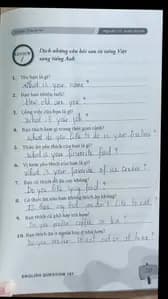 Dịch những câu hỏi sau từ tiếng Việt
sang tiếng Anh
1. Tên bạn là gì?
What is your name?
2. Bạn bao nhiêu tuổi?
How old are you?
3. Công việc của bạn là gì?
What is your job?
4. Bạn thích làm gì trong thời gian rảnh?
What do you like to do in your freetime?
5. Thức ăn yêu thích của bạn là gì?
What is your favourite food?
6. Vị kem yêu thích của bạn là gì?
What is your favorite of ice cream?
7. Bạn có thích đồ ăn cay không?
Do you like spicy food?
8. Có thức ăn nào bạn không thích ăn không?
Is there any food you don't like to eat
9. Bạn thích cà phê hay trà hơn?
Do you prefer coffee or tea?
10. Bạn thích ăn ở ngoài hay ở nhà hơn?
Do you prefer eat out or at home
ENGLISH QUESTION 101